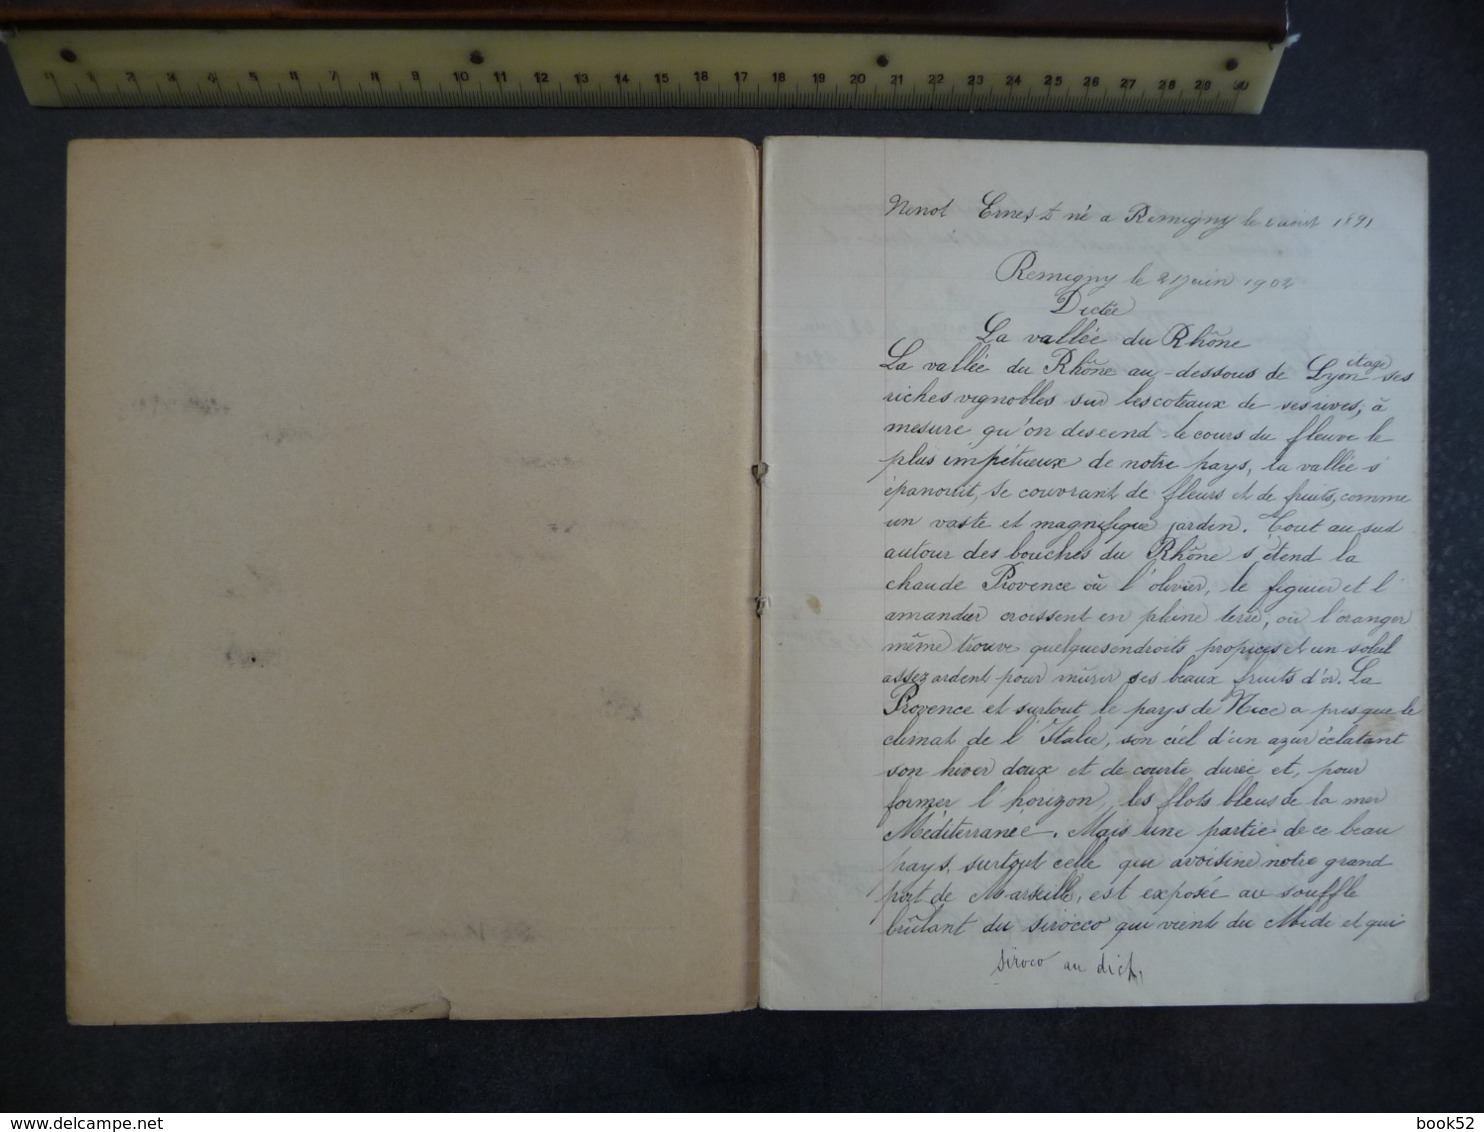 0 1 2 3 4 5 6 7 8 9 10 11 12 13 14 15 16 17 18 19 20 21 22 23 24 25 26 27 28 29 30
Nenot Ernest né a Remigny le août 1891
Remigny le 21 Juin 1902
Dictée
La vallée du Rhône
La vallée du Rhône au-dessous de Lyon étage ses
riches vignobles sur les coteaux de ses rives; à
mesure qu'on descend le cours du fleuve le
plus impétueux de notre pays, la vallée s'
épanouit, se couvrant de fleurs et de fruits, comme
un vaste et magnifique jardin. Tout au sud
autour des bouches du Rhône s'étend la
chaude Provence où l'olivier, le figuier et l'
amandier croissent en pleine terre, où l'oranger
même trouve quelques endroits propices et un soleil
assez ardent pour mûrir ses beaux fruits d'or. La
Provence et surtout le pays de Nice a presque le
climat de l'Italie, son ciel d'un azur éclatant
son hiver doux et de courte durée et, pour
former l'horizon, les flots bleus de la mer
Méditerranée. Mais une partie de ce beau
pays, surtout celle qui avoisine notre grand
port de Marseille, est exposée au souffle
brûlant du sirocco qui vient du Midi et qui
siroco au dict,
delcampe.net
book52